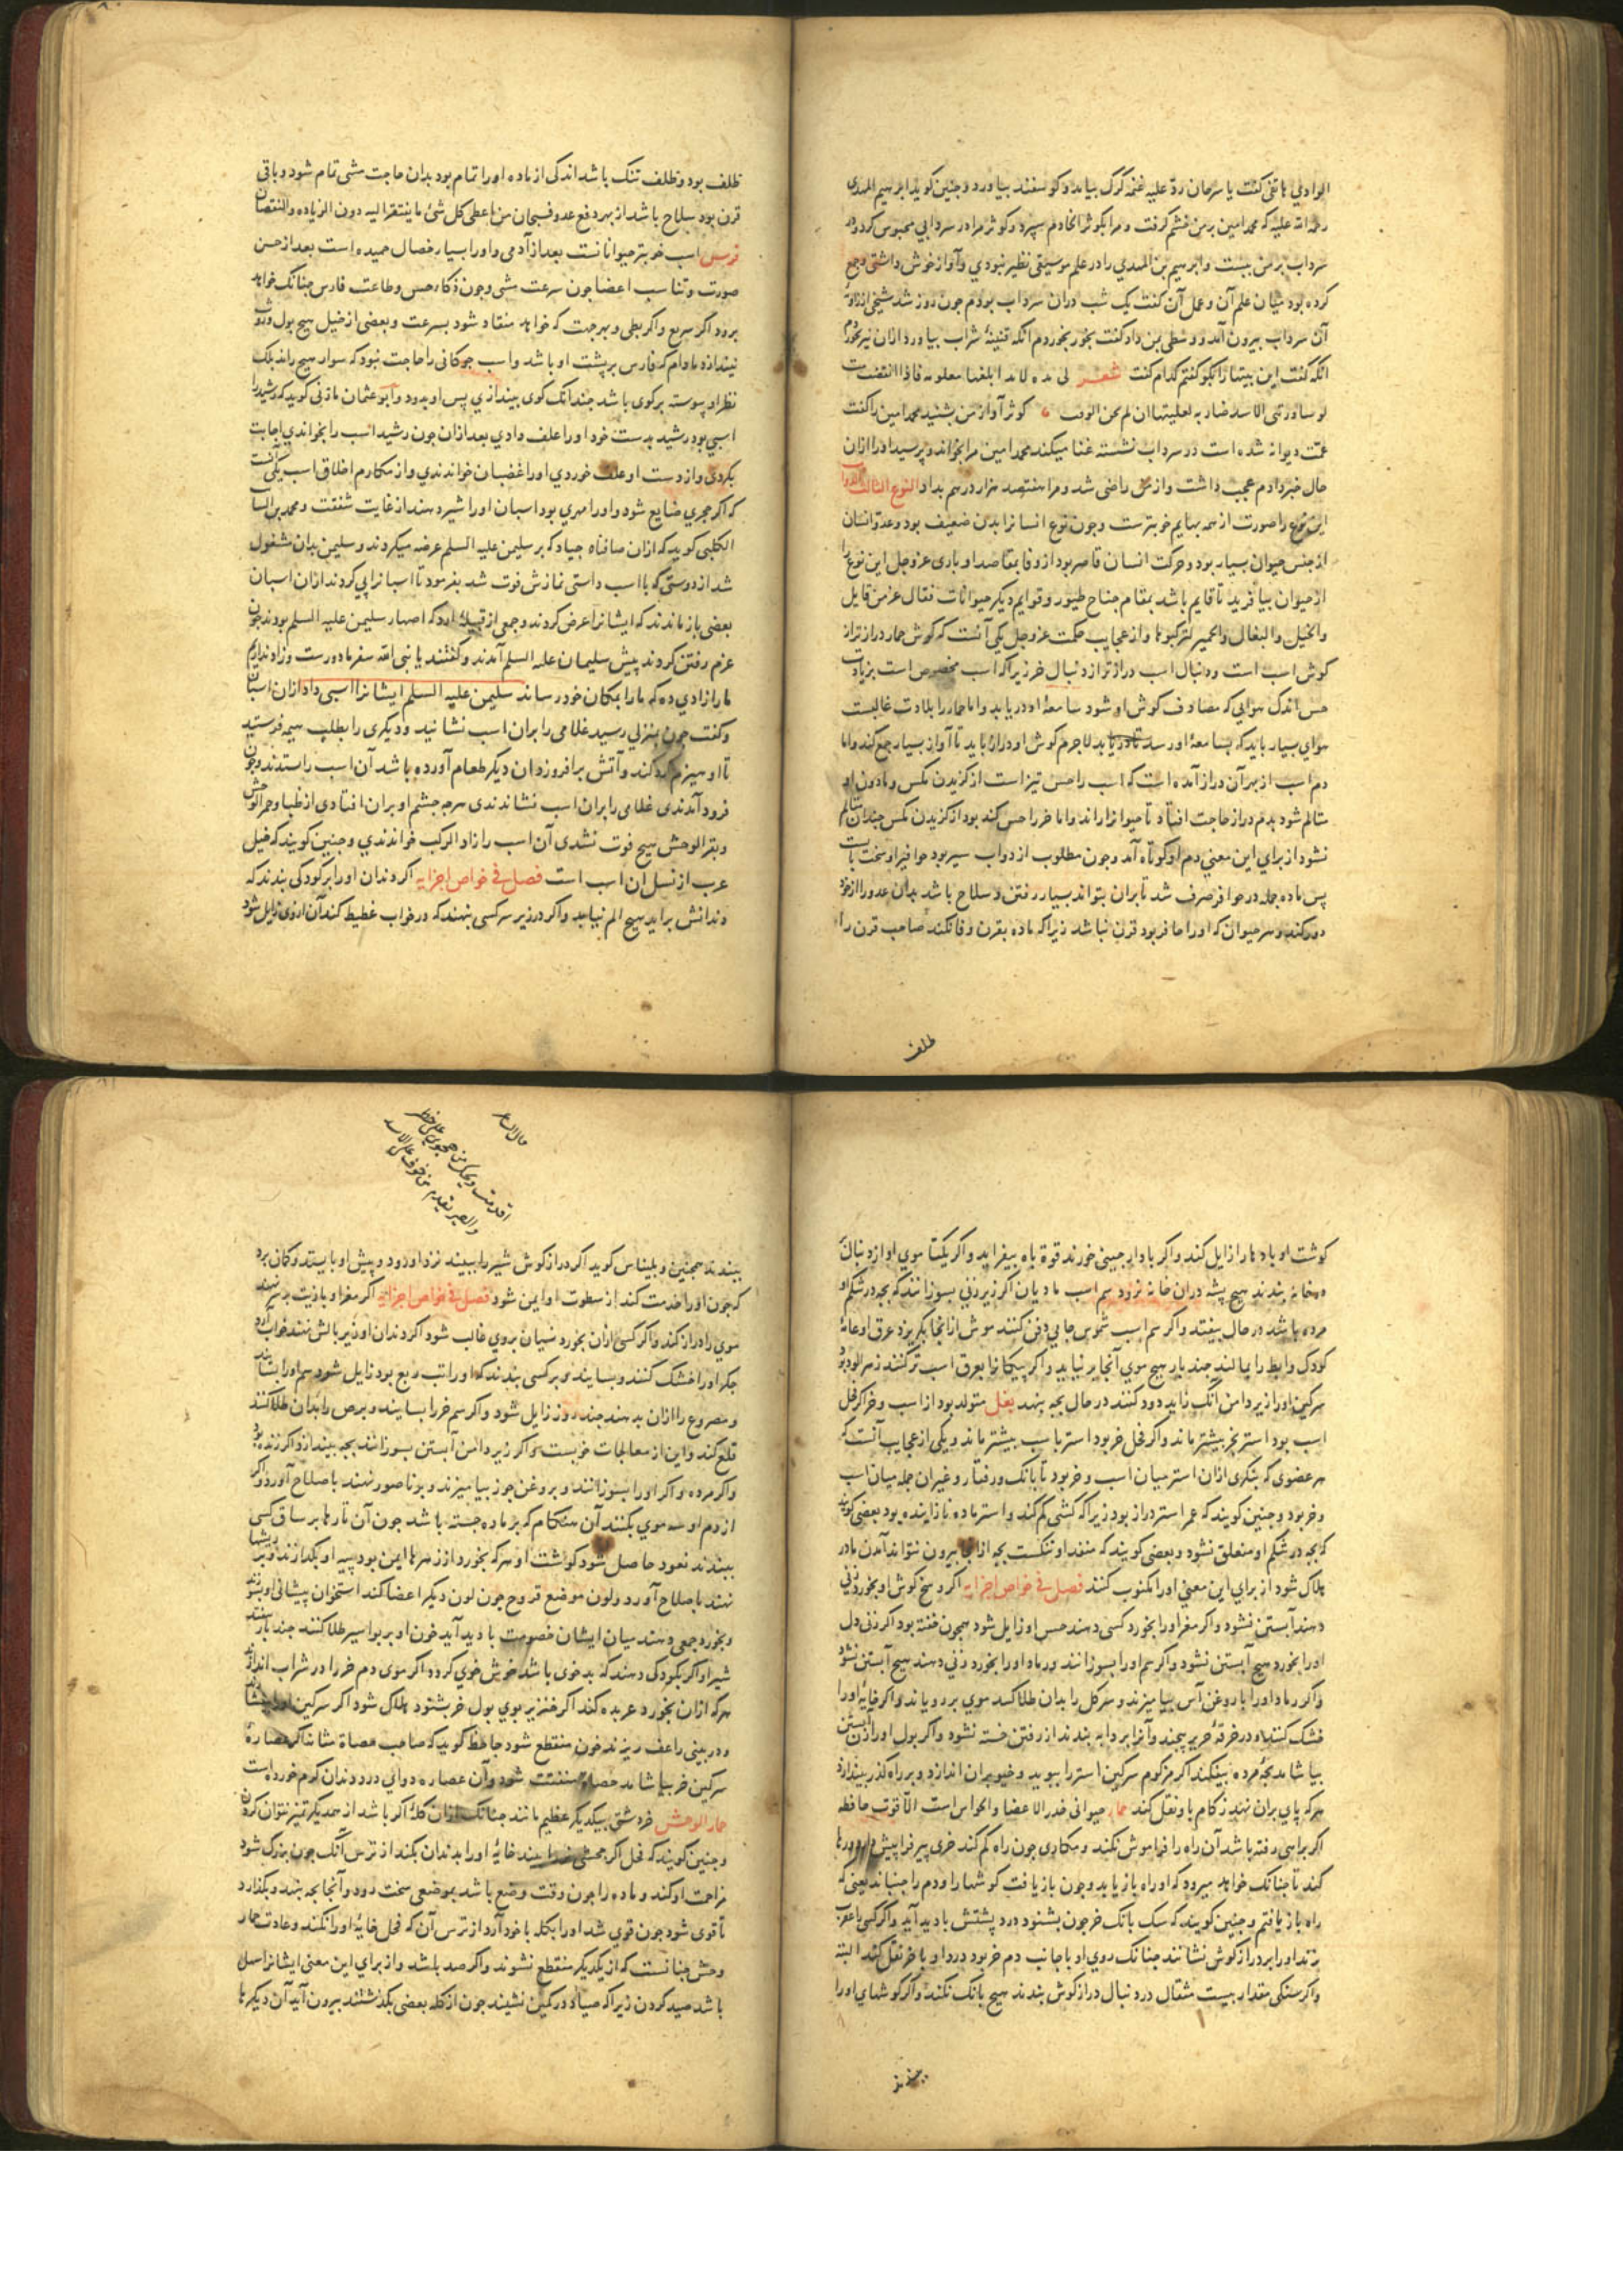 الوادی هاتفی گفت یا سرحان ردّ علیه غنمه گرگ بیامد و گوسفند بیاورد و چنین گوید ابرهیم المهدی
رحمة الله علیه که محمد امین بر من خشم گرفت و مرا بکوثر الخادم سپرد و کوثر مرا در سردابی محبوس کرد و در
سرداب بر من ببست و ابرهیم بن المهدی را در علم موسیقی نظیر نبودی و آواز خوش داشتی و جمع
کرده بود میان علم آن و عمل آن گفت یک شب دران سرداب بودم چون روز شد شیخی از زاویهٔ
آن سرداب بیرون آمد و وسطی بمن داد گفت بخور بخوردم انکه قنینهٔ شراب بیاورد ازان نیز بخوردم
انکه گفت این بیتها را بگو گفتم کدام گفت شعر لی مده لابد ابلغها معلومه فاذا انقضت
لو ساورتنی الاسد ضاریه لغلبتها ان لم یحن الوقت کوثر آواز من بشنید محمد امین را گفت
عمّت دیوانه شده است در سرداب نشسته غنا میکند محمد امین مرا بخواند و پرسید او را ازان
حال خبر دادم عجب داشت و از من راضی شد و مرا هفتصد هزار درهم بداد النوع الثالث الدواب
این نوع را صورت از همه بهایم خوبترست و چون نوع انسان را بدن ضعیف بود و عدو انسان
از جنس حیوان بسیار بود و حرکت انسان قاصر بود از وفا بمقاصد او باری عز و جل این نوع را
از حیوان بیافرید تا قایم باشد بمقام جناح طیور و قوایم دیگر حیوانات فقال عز من قایل
والخیل والبغال والحمیر لترکبوها و از عجایب حکمت عز و جل یکی آنست که گوش حمار درازتر از
گوش اسب است و دنبال اسب درازتر از دنبال خر زیرا که اسب مخصوص است بزیادت
حس اندک هوایی که مصادف گوش او شود سامعهٔ او دریابد و اما حمار را بلادت غالبست
هوای بسیار باید که بسامعهٔ او رسد تا دریابد لاجرم گوش او دراز باید تا آواز بسیار جمع کند و اما
دم اسب از بهر آن دراز آمده است که اسب را حس تیز است از گزیدن مگس و مادون او
متألم شود بدم دراز حاجت افتاد تا حیوانرا براند و اما خر را حس کند بود از گزیدن مگس چندان متألم
نشود از برای این معنی دم او کوتاه آمد و چون مطلوب از دواب سیر بود حوافر او سخت بایست
پس ماده جمله در حوافر صرف شد تا بران بتواند بسیار رفتن و سلاح باشد بدان عدو را از خود
دور کند و هر حیوان که او را حافر بود قرن نباشد زیرا که ماده بقرن وفا نکند صاحب قرن را
ظلف
ظلف بود و ظلف تنک باشد اندکی از ماده او را تمام بود بدان حاجت مشی تمام شود و باقی
قرن بود سلاح باشد از بهر دفع عدو فسبحان من اعطی کل شیٔ ما یفتقر الیه دون الزیاده والنقصان
فرس اسب خوبتر حیوانانست بعد از آدمی و او را بسیار خصال حمیده است بعد از حسن
صورت و تناسب اعضا چون سرعت مشی و چون ذکاء حس و طاعت فارس چنانک خواهد
برود اگر سریع و اگر بطی و بهر جهت که خواهد منقاد شود بسرعت و بعضی از خیل هیچ بول و روث
نیندازد مادام که فارس بر پشت او باشد و اسب چوگانی را حاجت نبود که سوار هیچ راند بلک
نظر او پیوسته بر گوی باشد چندانک گوی بیندازی پس او بدود و ابوعثمان مازنی گوید که رشید را
اسبی بود رشید بدست خود او را علف دادی بعد ازان چون رشید اسب را بخواندی اجابت
بکردی و از دست او علف خوردی او را غضبان خواندندی و از مکارم اخلاق اسب یکی آنست
که اگر حجری ضایع شود و او را مهری بود اسبان او را شیر دهند از غایت شفقت و محمد بن السایب
الکلبی گوید که ازان صافنات جیاد که بر سلیمن علیه السلم عرضه میکردند و سلیمن بدان مشغول
شد از دوستی که با اسب داشتی نمازش فوت شد بفرمود تا اسبانرا پی کردند ازان اسبان
بعضی باز ماندند که ایشانرا عرض کردند و جمعی از قبیلهٔ ازد که اصهار سلیمن علیه السلم بودند چون
عزم رفتن کردند پیش سلیمان علیه السلم آمدند و گفتند یا نبی الله سفر ما دورست و زاد نداریم
ما را زادی ده که ما را بمکان خود رساند سلیمن علیه السلم ایشانرا اسبی داد ازان اسبان
و گفت چون بمنزلی رسید غلامی را بران اسب نشانید و دیگری را بطلب هیمه فرستید
تا او هیزم گرد کند و آتش برافروزد آن دیگر طعام آورده باشد آن اسب را ستدند و چون
فرود آمدندی غلامی را بران اسب نشاندندی هرچه چشم او بران افتادی از ظبا و حمر الوحش
و بقر الوحش هیچ فوت نشدی آن اسب را زاد الرکب خواندندی و چنین گویند که خیل
عرب از نسل ان اسب است فصل فی خواص اجزایه اگر دندان او را بر کودکی بندند که
دندانش براید هیچ الم نیابد و اگر در زیر سر کسی بنهند که در خواب غطیط کند آن ازوی زایل شود
گوشت او بادها را زایل کند و اگر با دارچینی خورند قوة باه بیفزاید و اگر یکتا موی او از دنبال
در خانهٔ بندند هیچ پشه دران خانه نرود سم اسب مادیان اگر زیر زنی بسوزانند که بچه در شکم او
مرده باشد در حال بیفتد و اگر سم اسب شموس جایی دفن کنند موش از انجا بگریزد عرق او عانهٔ
کودک و ابط را بمالند چند بار هیچ موی آنجا برنیاید و اگر پیکانها بعرق اسب تر کنند زهرالود بود
سرگین او را زیر دامن آنک زاید دود کنند در حال بچه بنهد بغل متولد بود از اسب و خر اگر فحل
اسب بود استر بخر بیشتر ماند و اگر فحل خر بود استر باسب بیشتر ماند و یکی از عجایب آنست که
هر عضوی که بنگری ازان استر میان اسب و خر بود تا بانگ و رفتار و غیران جمله میان اسب
و خر بود و چنین گویند که عمر استر دراز بود زیرا که کشنی کم کند و استر ماده نازاینده بود بعضی گویند
که بچه در شکم او متعلق نشود و بعضی گویند که منفذ او تنگست بچه ازانجا بیرون نتواند آمدن مادر
هلاک شود از برای این معنی او را مکتوب کنند فصل فی خواص اجزایه اگر وسخ گوش او بخورد زنی
دهند آبستن نشود و اگر مغز او را بخورد کسی دهند حس او زایل شود همچون خفته بود اگر زنی دل
او را بخورد هیچ آبستن نشود و اگر سم او را بسوزانند و رماد او را بخورد زنی دهند هیچ آبستن نشود
و اگر رماد او را با روغن آس بیامیزند و سر کل را بدان طلا کنند موی بر رویاند و اگر خایهٔ او را
خشک کنند و در خرقهٔ حریر پیچند و آنرا بر دابه بندند از رفتن خسته نشود و اگر بول او را زن آبستن
بیاشامد بچهٔ مرده بیفکند اگر مزکوم سرگین استر را ببوید و خیو بران اندازد و بر راه گذر بیندازد
هر که پای بران نهد زکام باو نقل کند حمار حیوانی خدر الاعضا والحواس است الّا قوت حافظه
اگر براهی رفته باشد آن راه را فراموش نکند و مکاری چون راه گم کند خری پیر فرا پیش دارد و رها
کند تا چنانک خواهد میرود که او راه بازیابد و چون باز یافت گوشها را و دم را جنباند یعنی که
راه باز یافتم و چنین گویند که سگ بانگ خر چون بشنود درد پشتش بادید آید و اگر کسی را عقرب
زند او را بر درازگوش نشانند چنانک روی او با جانب دم خر بود درد او با خر نقل کند البته
و اگر سنگی مقدار بیست مثقال در دنبال درازگوش بندند هیچ بانگ نکند و اگر گوشهای او را
قال الشاعر
بندند همچنین و بلیناس گوید اگر درازگوش شیر را ببیند نزد او رود و پیش او بایستد و گمان برد
که چون او را خدمت کند از سطوت او ایمن شود فصل فی خواص اجزایه اگر مغز او با زیت بر سر نهند
موی را دراز کند و اگر کسی ازان بخورد نسیان بروی غالب شود اگر دندان او زیر بالش نهند خواب آرد
جگر او را خشک کنند و بسایند و بر کسی بندند که او را تب ربع بود زایل شود سم او را بسایند
و مصروع را ازان بدهند چند روز زایل شود و اگر سم خر را بسایند و برص را بدان طلا کنند
قلع کند و این از معالجات خوبست و اگر زیر دامن آبستن بسوزانند بچه بیندازد اگر زنده بود
و اگر مرده و اگر او را بسوزانند و بروغن جوز بیامیزند و بر ناصور نهند باصلاح آورد و اگر
از دم او سه موی بکنند آن هنگام که بر ماده جسته باشد چون آن تارها بر ساق کسی
ببندند نعوذ حاصل شود گوشت او هر که بخورد از زهرها ایمن بود پیه او بگدازند و بر ریشها
نهند باصلاح آورد و لون موضع قروح چون لون دیگر اعضا کند استخوان پیشانی او بسوزند
و بخورد جمعی دهند میان ایشان خصومت بادید آید خون او بر بواسیر طلا کنند چند بار بیفتد
شیر او اگر بکودک دهند که بدخوی باشد خوش خوی گردد اگر موی دم خر را در شراب اندازند
هر که ازان بخورد عربده کند اگر خنزیر بوی بول خر بشنود هلاک شود اگر سرگین او را
و در بینی راعف ریزند خون منقطع شود جاحظ گوید که صاحب حصاة مثانه اگر عصارهٔ
سرگین خر بیاشامد حصاة متفتت شود و آن عصاره دوای درد دندان کرم خورده است
حمار الوحش خر دشتی بیکدیگر عظیم مانند چنانک ازان گله اگر باشد از همدیگر تمیز نتوان کردن
و چنین گویند که فحل اگر جحشی بیند خایهٔ او را بدندان بکند از ترس آنک چون بزرگ شود
مزاحمت او کند و ماده را چون وقت وضع باشد بموضعی سخت رود و آنجا بچه بنهد و بگذارد
تا قوی شود چون قوی شد او را بگله با خود آرد از ترس آن که فحل خایهٔ او را نکند و عادت حمار
وحش چنانست که از یکدیگر منقطع نشوند و اگر صد باشد و از برای این معنی ایشانرا سهل
باشد صید کردن زیرا که صیاد در کمین نشیند چون از گله بعضی بگذشتند بیرون آید آن دیگرها